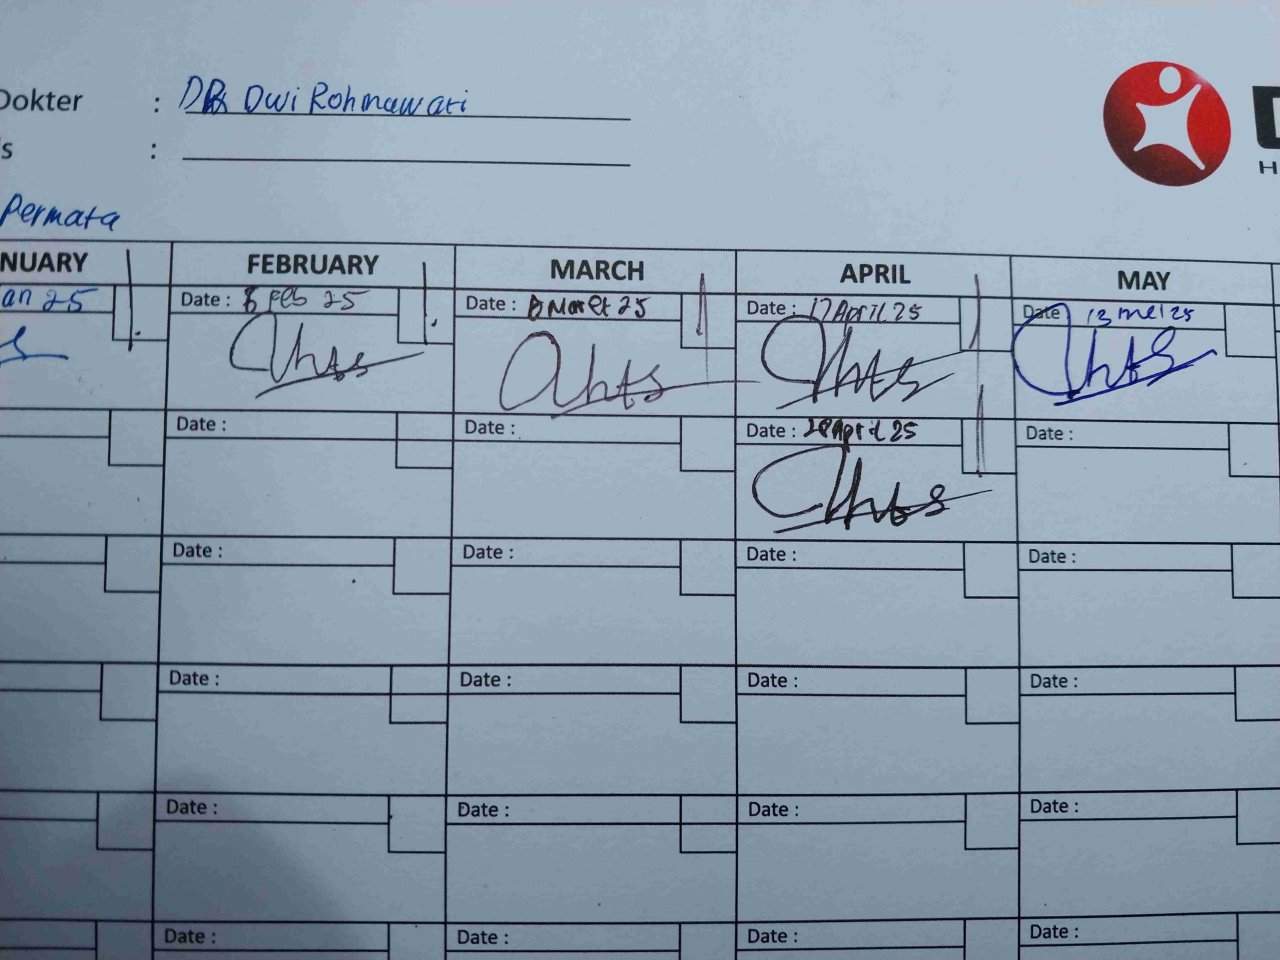 Dokter : DR Dwi Rohmawati
s :
Permata
NUARY FEBRUARY MARCH APRIL MAY
an 25 Date : 8 Feb 25 Date : 8 Maret 25 Date : 17 April 25 Date 13 mei 25
Date : Date : Date : 28 April 25 Date :
Date : Date : Date : Date :
Date : Date : Date : Date :
Date : Date : Date : Date :
Date : Date : Date : Date :